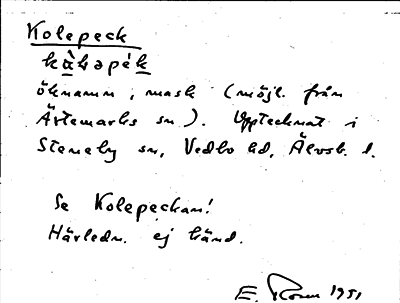 Kolepeck
kå̀ləpék
öknamn, mask (möjl. från
Ärtemarks sn). Upptecknat i
Steneby sn, Vedbo hd, Älvsb. l.
Se Kolepeckan!
Härledn. ej känd.
E. 1951